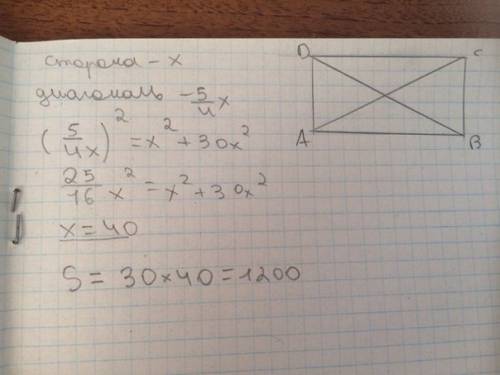 сторона - x
диагональ - 5/4 x
(5/4x)² = x² + 30x²
25/16 x² = x² + 30x²
x = 40
S = 30×40 = 1200
D C
A B